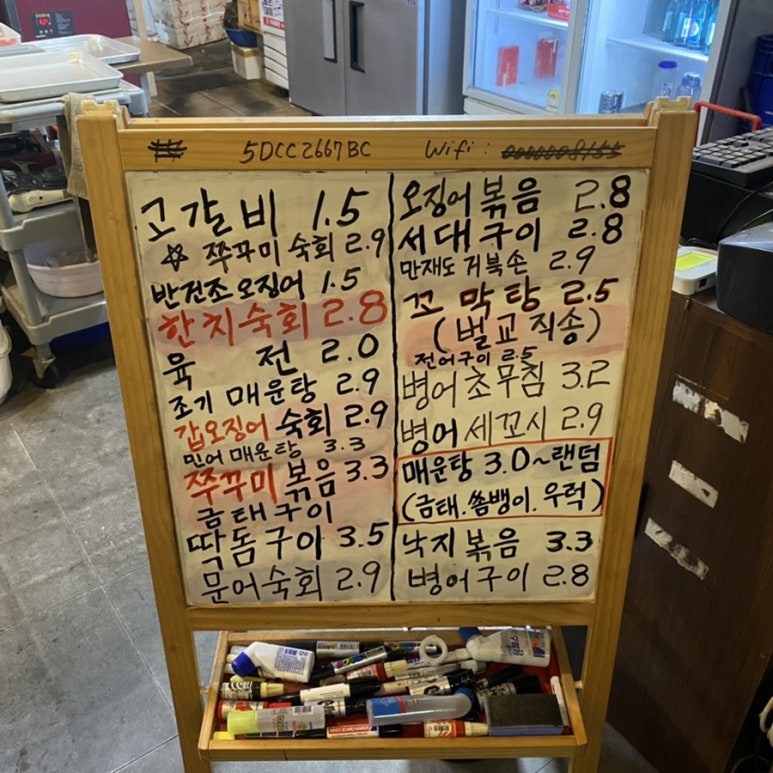 5DCC2667BC Wifi :
고갈비 1.5
☆ 쭈꾸미 숙회 2.9
반건조 오징어 1.5
한치숙회 2.8
육 전 2.0
조기 매운탕 2.9
갑오징어 숙회 2.9
민어 매운탕 3.3
쭈꾸미 볶음 3.3
금태구이
딱돔구이 3.5
문어숙회 2.9
오징어 볶음 2.8
서대구이 2.8
만재도 거북손 2.9
꼬막탕 2.5
(벌교 직송)
전어구이 2.5
병어 초무침 3.2
병어 세꼬시 2.9
매운탕 3.0~랜덤
(금태. 쏨뱅이. 우럭)
낙지볶음 3.3
병어구이 2.8